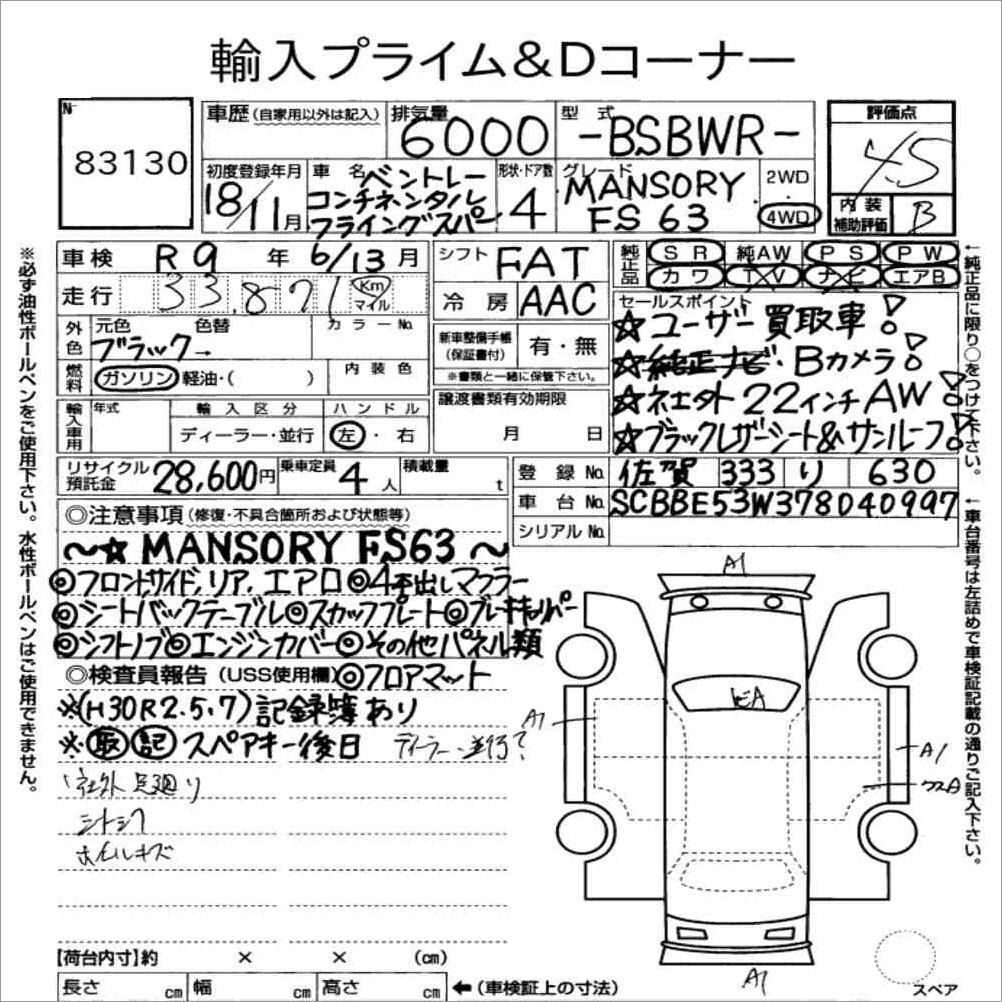 輸入プライム&Dコーナー
№
83130
車歴(自家用以外は記入)
排気量
6000
型式
-BSBWR-
評価点
4.5
内装
補助評価
B
初度登録年月
18/11月
車名
ベントレー
コンチネンタル
フライングスパー
形状・ドア数
4
グレード
MANSORY
FS 63
2WD
4WD
車検
R9年6/13月
走行
33,871
Km
マイル
外色
元色
色替
カラーNo.
ブラック→
燃料
ガソリン・軽油・( )
内装色
輸入車用
年式
輸入区分
ハンドル
ディーラー・並行
左・右
シフト
FAT
冷房
AAC
新車整備手帳
(保証書付)
有・無
※書類と一緒に保管下さい。
譲渡書類有効期限
月 日
純正品
SR 純AW PS PW
カワ TV ナビ エアB
セールスポイント
☆ユーザー買取車!
☆純正ナビ・Bカメラ!
☆社外22インチAW!
☆ブラックレザーシート&サンルーフ!
←純正品に限り○をつけて下さい。
※必ず油性ボールペンをご使用下さい。水性ボールペンはご使用できません。
リサイクル
預託金
28,600円
乗車定員
4人
積載量
t
登録No.
佐賀 333 り 630
車台No.
SCBBE53W378040997
シリアルNo.
←車台番号は左詰めで車検証記載の通りご記入下さい。
◎注意事項(修復・不具合箇所および状態等)
~☆ MANSORY FS63 ~
◎フロント,サイド,リア,エアロ◎4本出しマフラー
◎シートバックテーブル◎スカッフプレート◎ブレーキキャリパー
◎シフトノブ◎エンジンカバー◎その他パネル類
◎検査員報告(USS使用欄)◎フロアマット
※(H30R2.5.7)記録簿あり
※取 記 スペアキー後日
ディーラー・並行?
社外足廻り
シートシワ
ホイルキズ
A1
ヒA
A1
A1
A1
【荷台内寸】約 × × (cm)
長さ cm 幅 cm 高さ cm
←(車検証上の寸法)
スペア